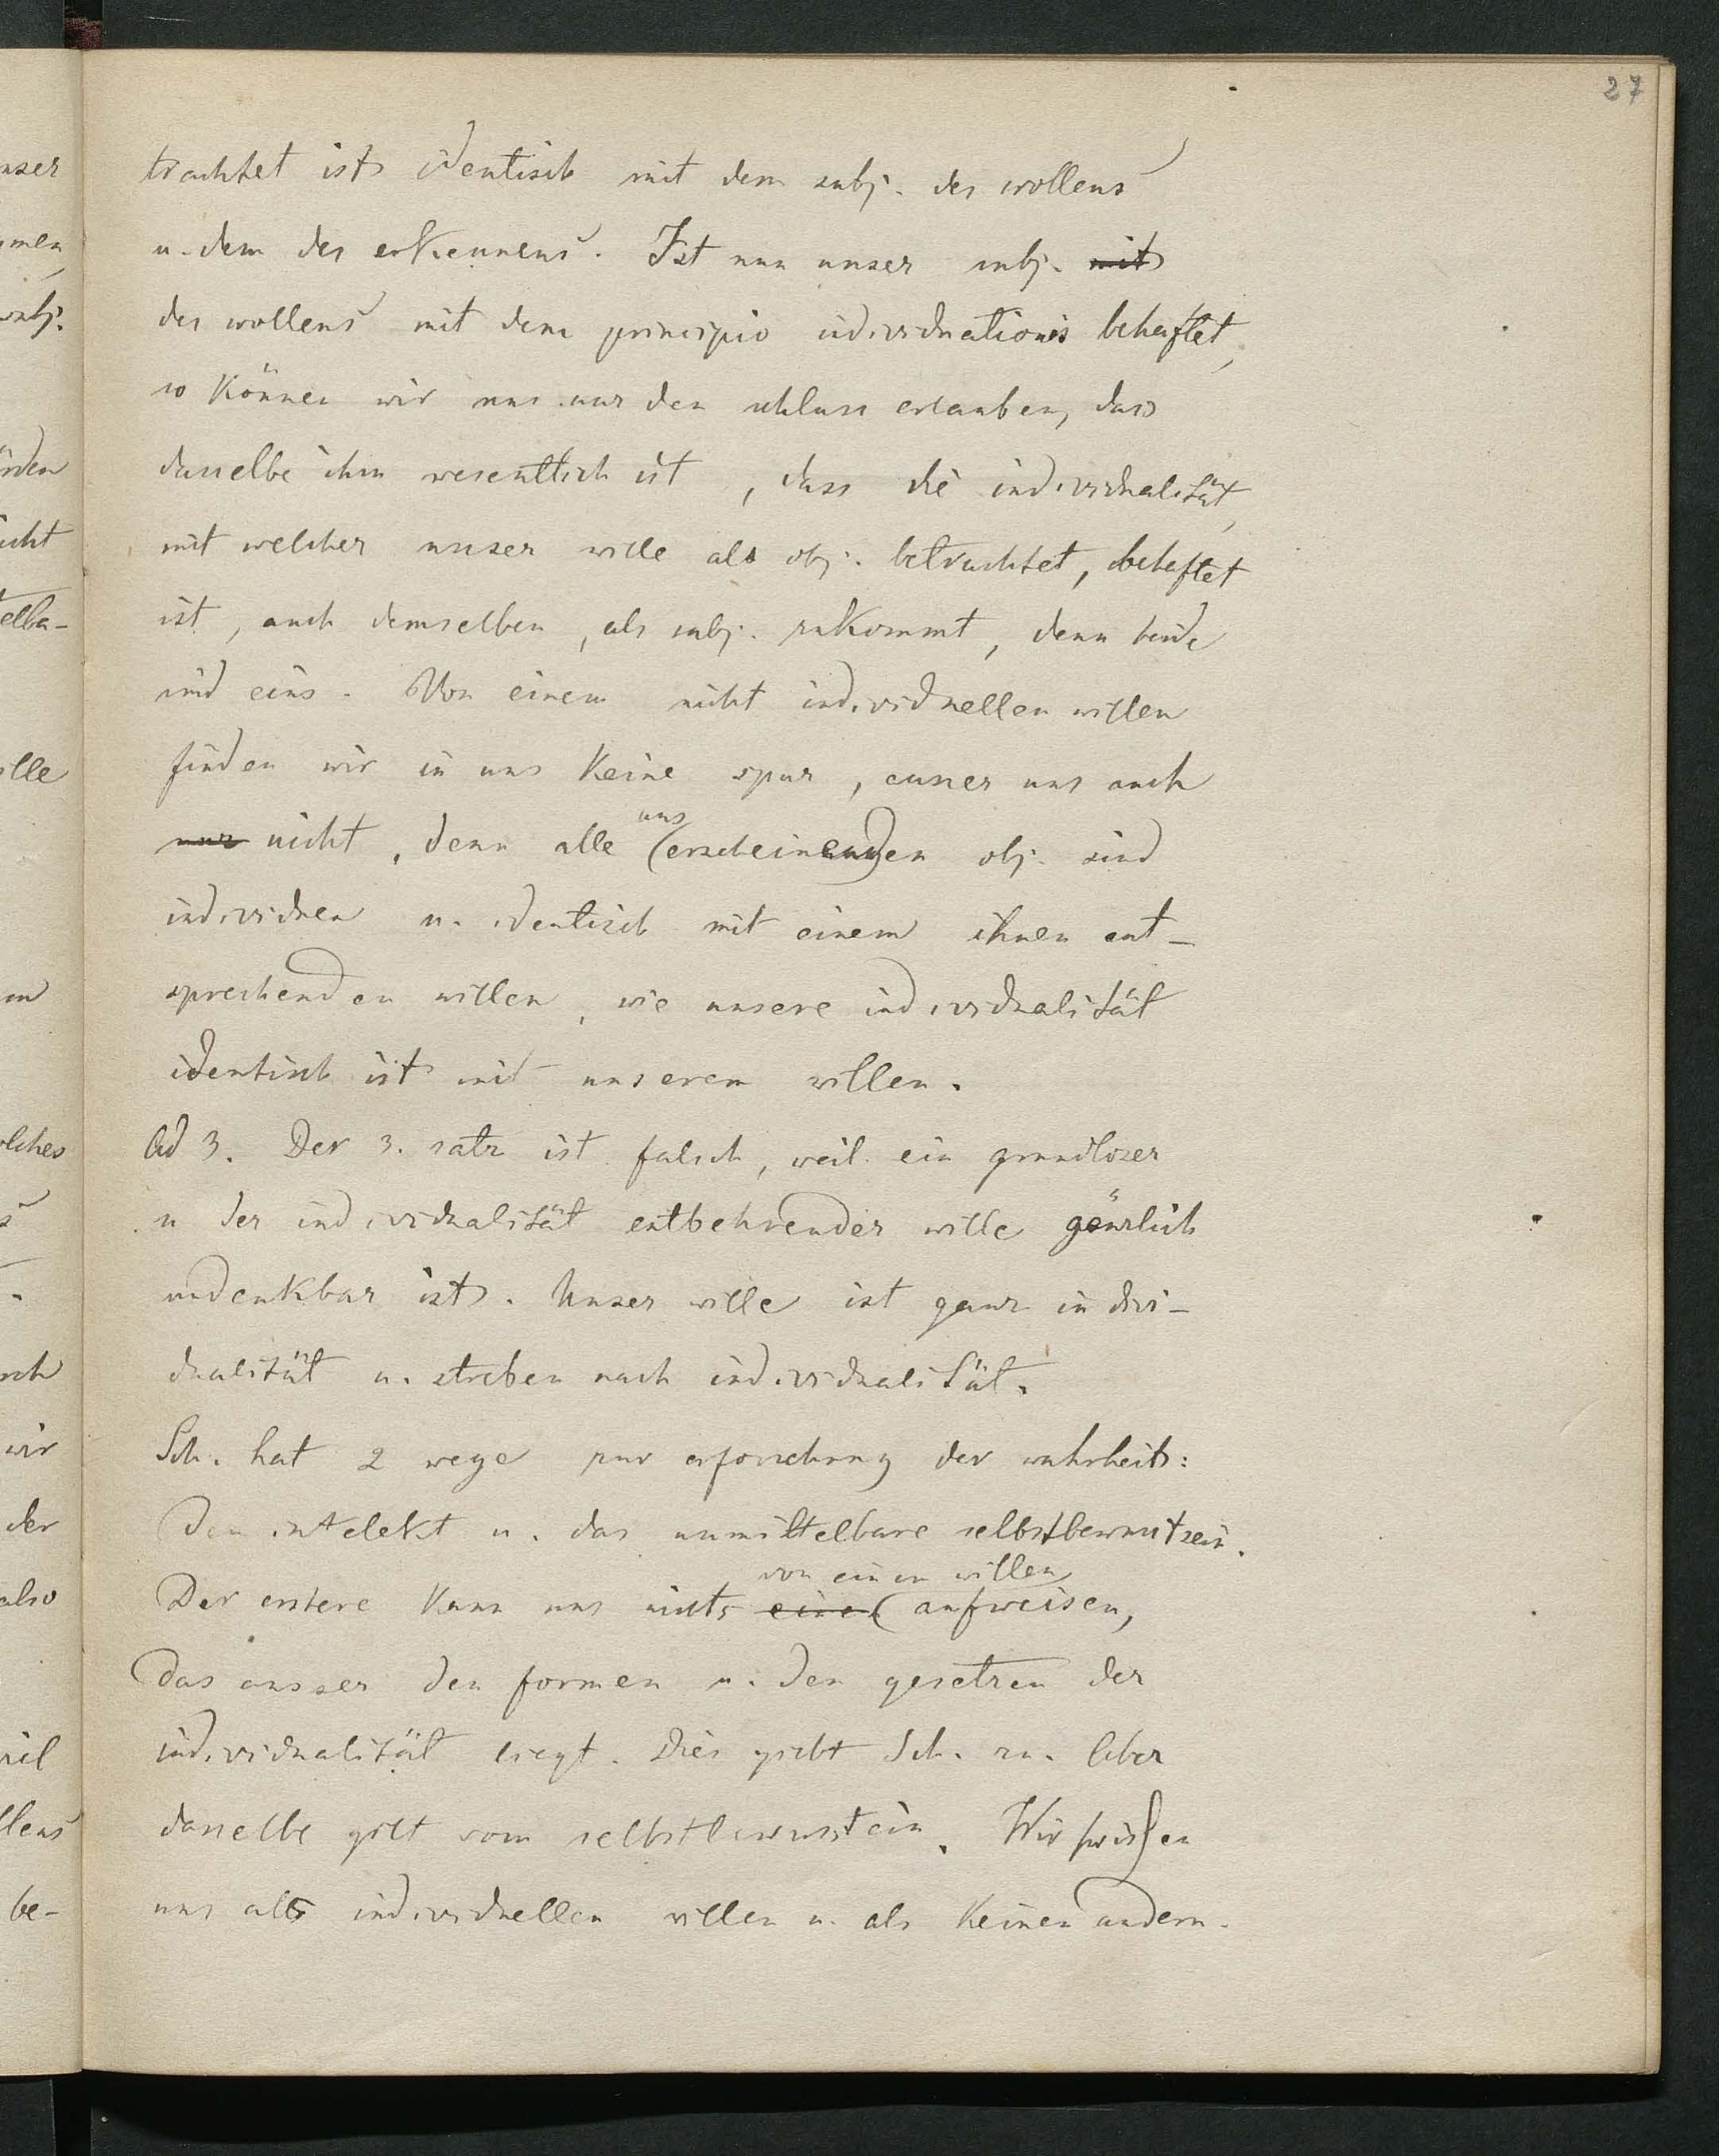 27
trachtet ist identisch mit dem subj. des wollens
u. dem des erkennens. Ist nun unser subj. mit
des wollens mit dem principio individuationis behaftet,
so können wir uns nur den schluss erlauben, dass
dasselbe ihm wesentlich ist, dass die individualität,
mit welcher unser wille als obj. betrachtet, behaftet
ist, auch demselben, als subj. zukommt, denn beide
sind eins. Von einem nicht individuellen willen
finden wir in uns keine spur, ausser uns auch
uns
nur nicht, denn alle (erscheinenden obj. sind
individuen u. identisch mit einem ihnen ent-
sprechenden willen, wie unsere individualität
identisch ist mit unserem willen.
Ad 3. Der 3. satz ist falsch, weil ein grundloser
u der individualität entbehrender wille gänzlich
undenkbar ist. Unser wille ist ganz indivi-
dualität u. streben nach individualität.
Sch. hat 2 wege zur erforschung der wahrheit:
Den intelekt u. das unmittelbare selbstbewustsein.
von einem willen
Der erstere kann uns nichts eines (aufweisen,
das ausser den formen u. den gesetzen der
individualität liegt. Dies giebt Sch. zu. Aber
dasselbe gilt vom selbstbewusstein. Wir wissen
uns als individuellen willen u. als keinen andern.
nser
men
subj.
örden
icht
telba-
ille
m
olches
s
rch
wir
der
also
weil
llens
be-